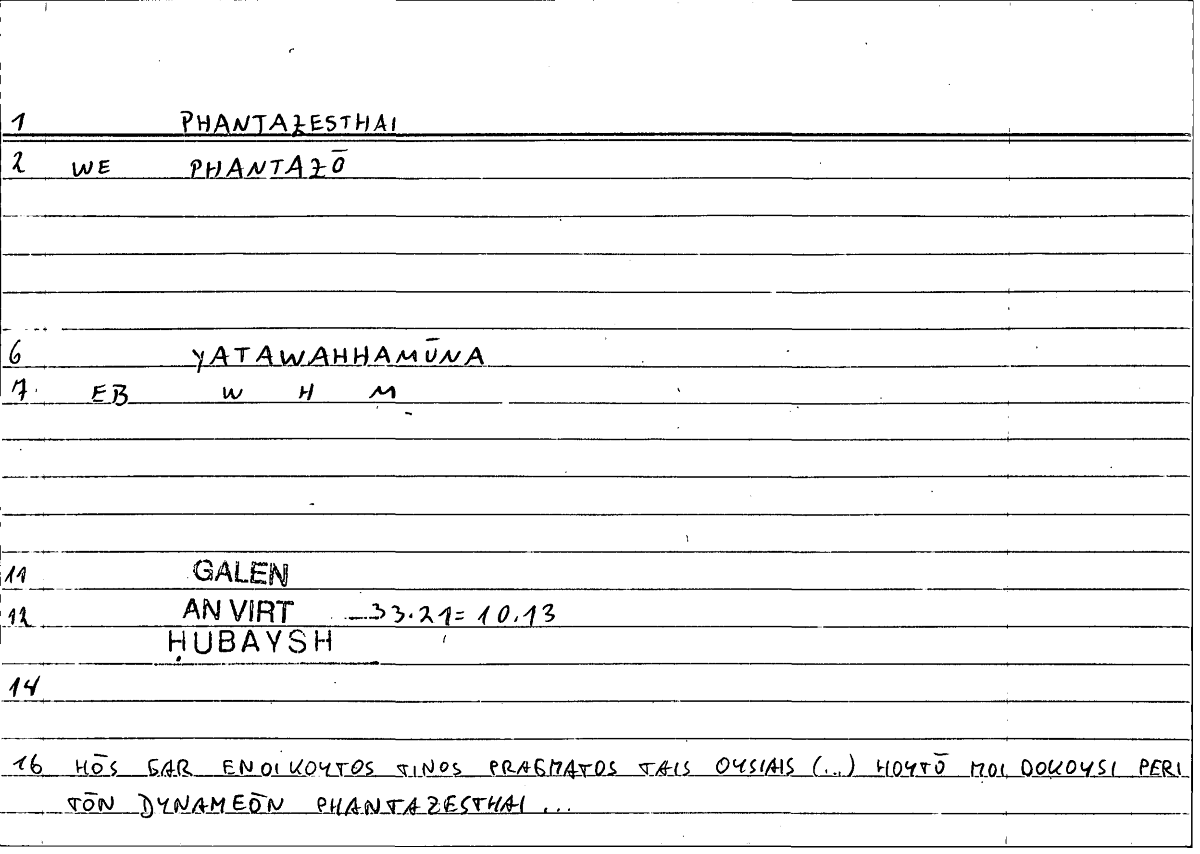 1 PHANTAZESTHAI
2 WE PHANTAZŌ
6 YATAWAHHAMŪNA
7 EB W H M
11 GALEN
12 AN VIRT 33.21= 10.13
ḤUBAYSH
14
16 HŌS GAR ENOIKOYTOS TINOS PRAGMATOS TAIS OYSIAIS (...) HOYTŌ MOI DOKOYSI PERI
TŌN DYNAMEŌN PHANTAZESTHAI ...